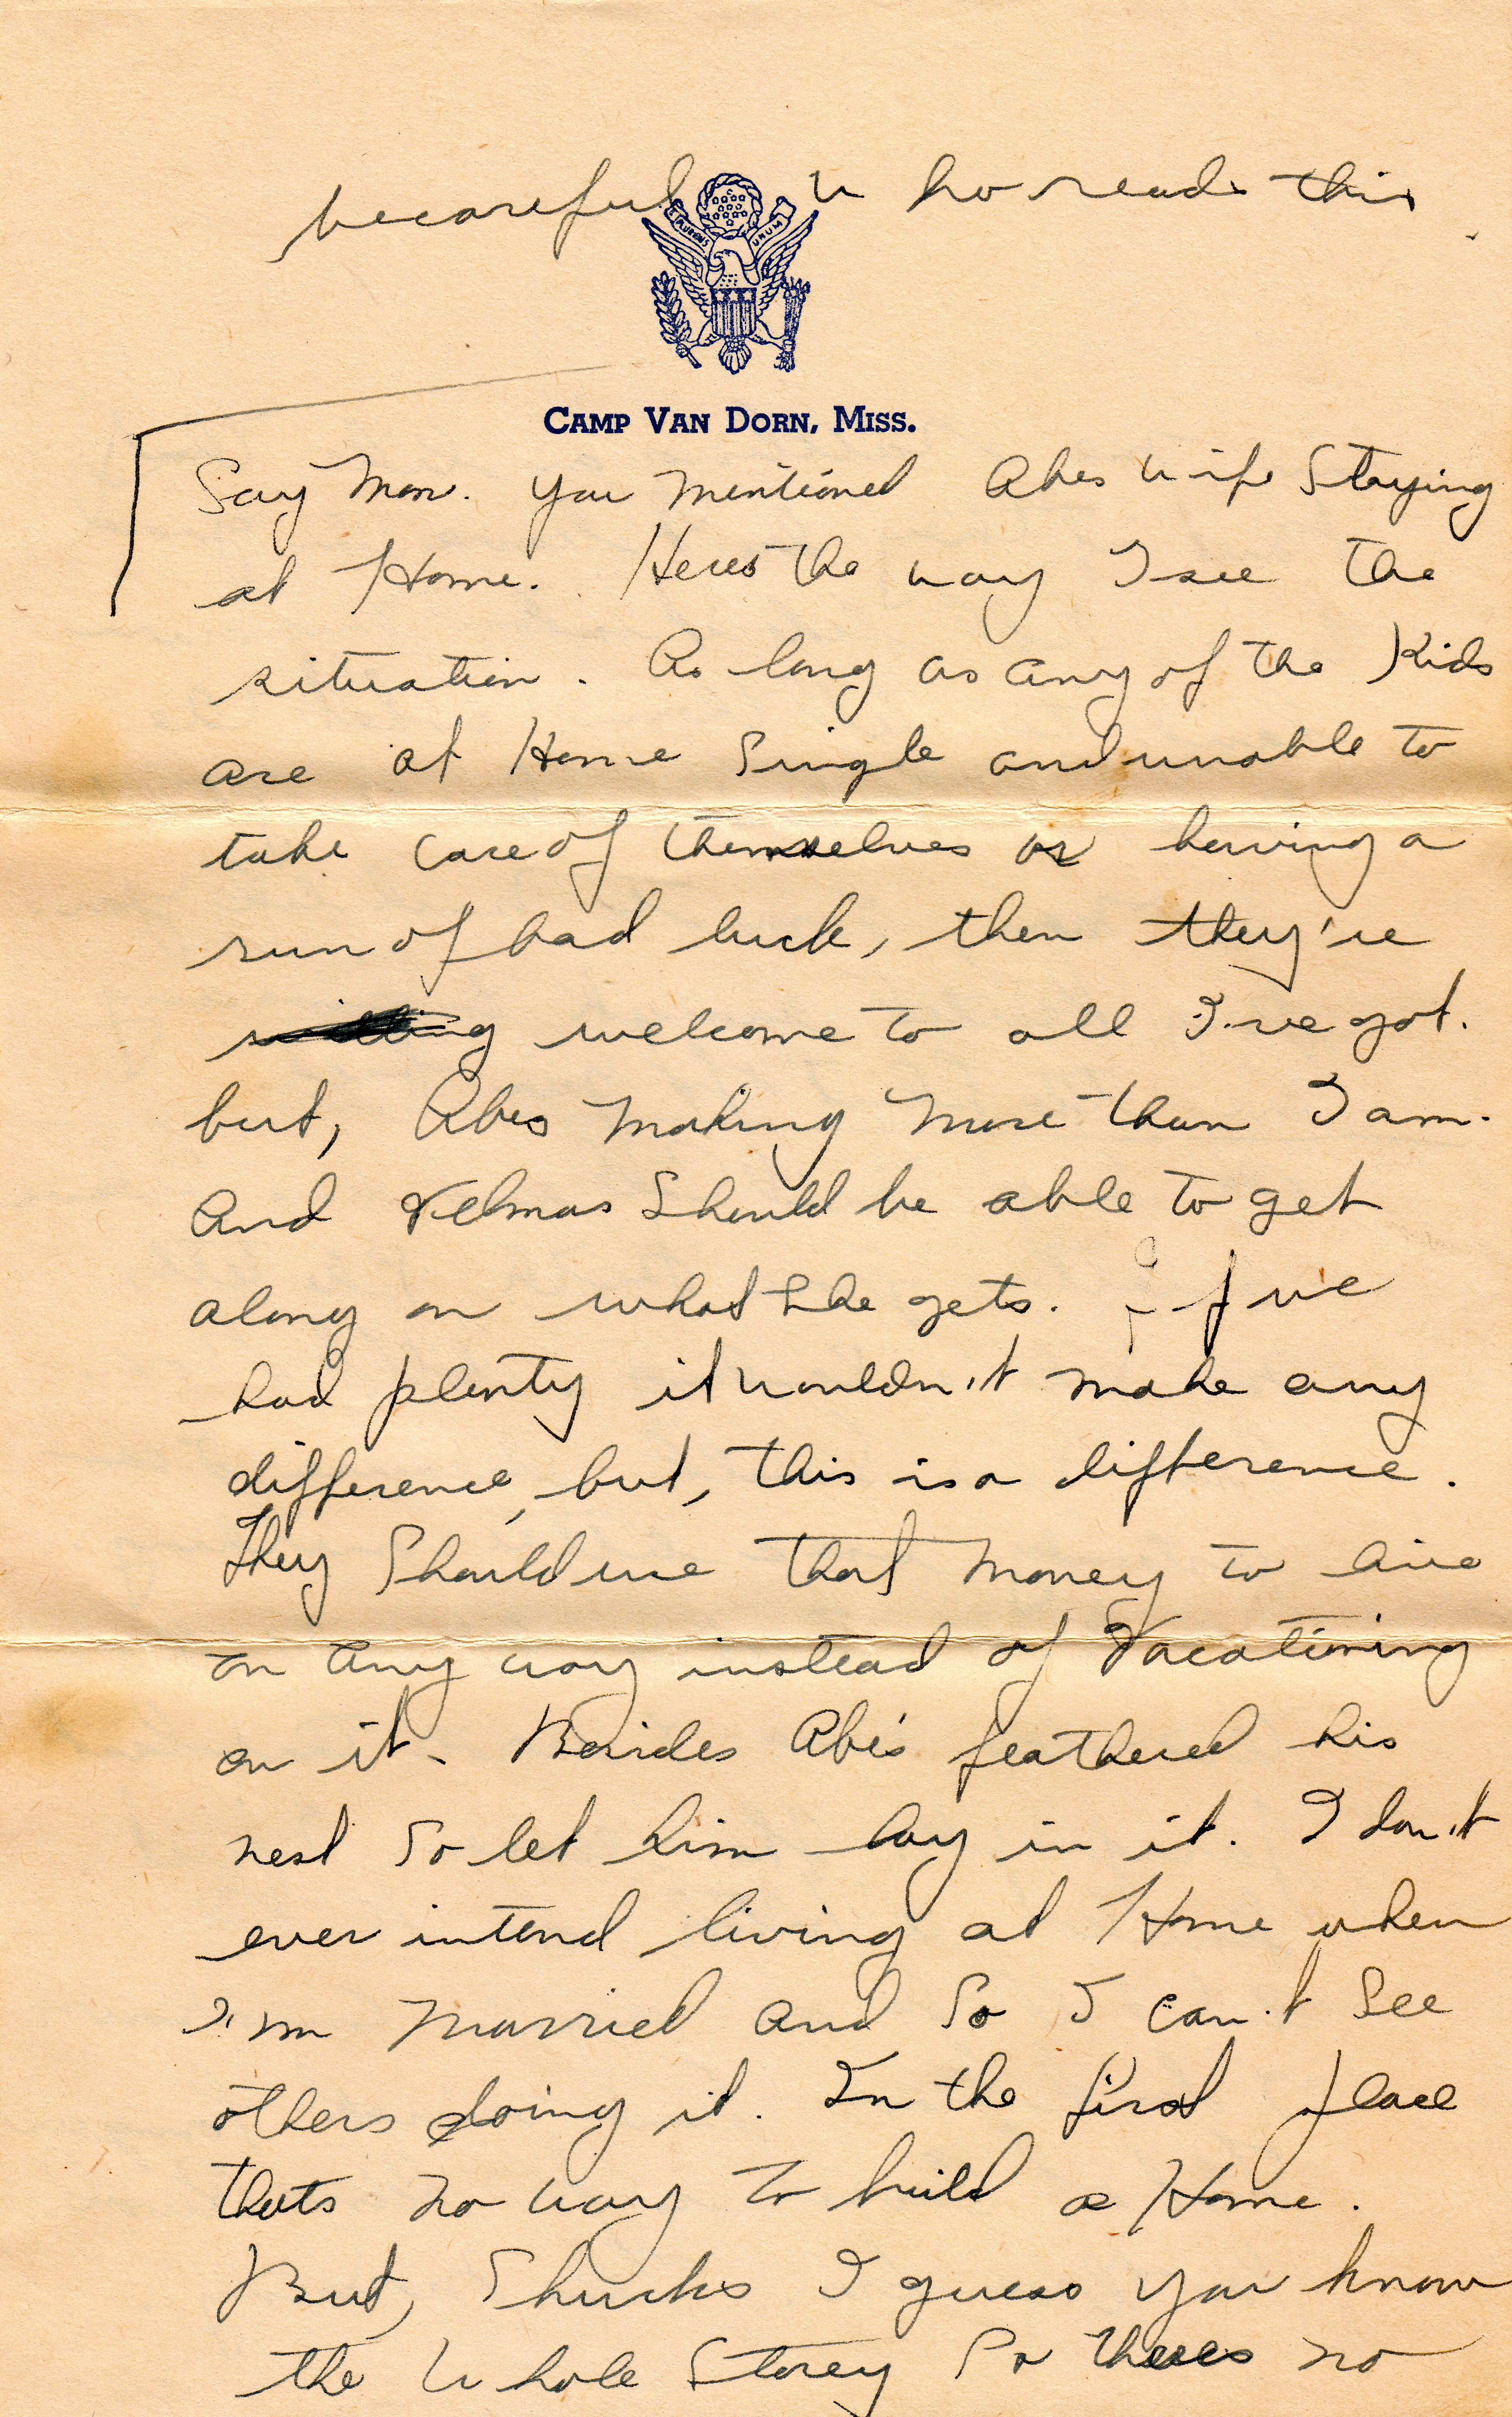 becareful who reads this
E PLURIBUS UNUM
CAMP VAN DORN, MISS.
Say Mom. you mentioned Abes wife Staying
at Home. Heres the way I see the
situation. As long as any of the Kids
are at Home Single and unable to
take care of themselves or having a
run of bad luck, then they're
welcome to all I've got.
but, Abes making more than I am.
And Velmas Should be able to get
along on what She gets. if we
had plenty it wouldn't make any
difference, but, this is a difference.
They Should use that money to live
on any way instead of Vacationing
on it. Besides Abe's feathered his
nest So let him lay in it. I don't
ever intend living at Home when
I'm married and So I can't See
others doing it. In the first place
thats no way to build a Home.
But, Shucks I guess you know
the whole Storey So theres no